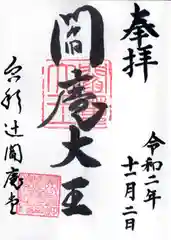 奉拝
令和二年
十一月二日
閻魔大王
六形辻閻魔堂